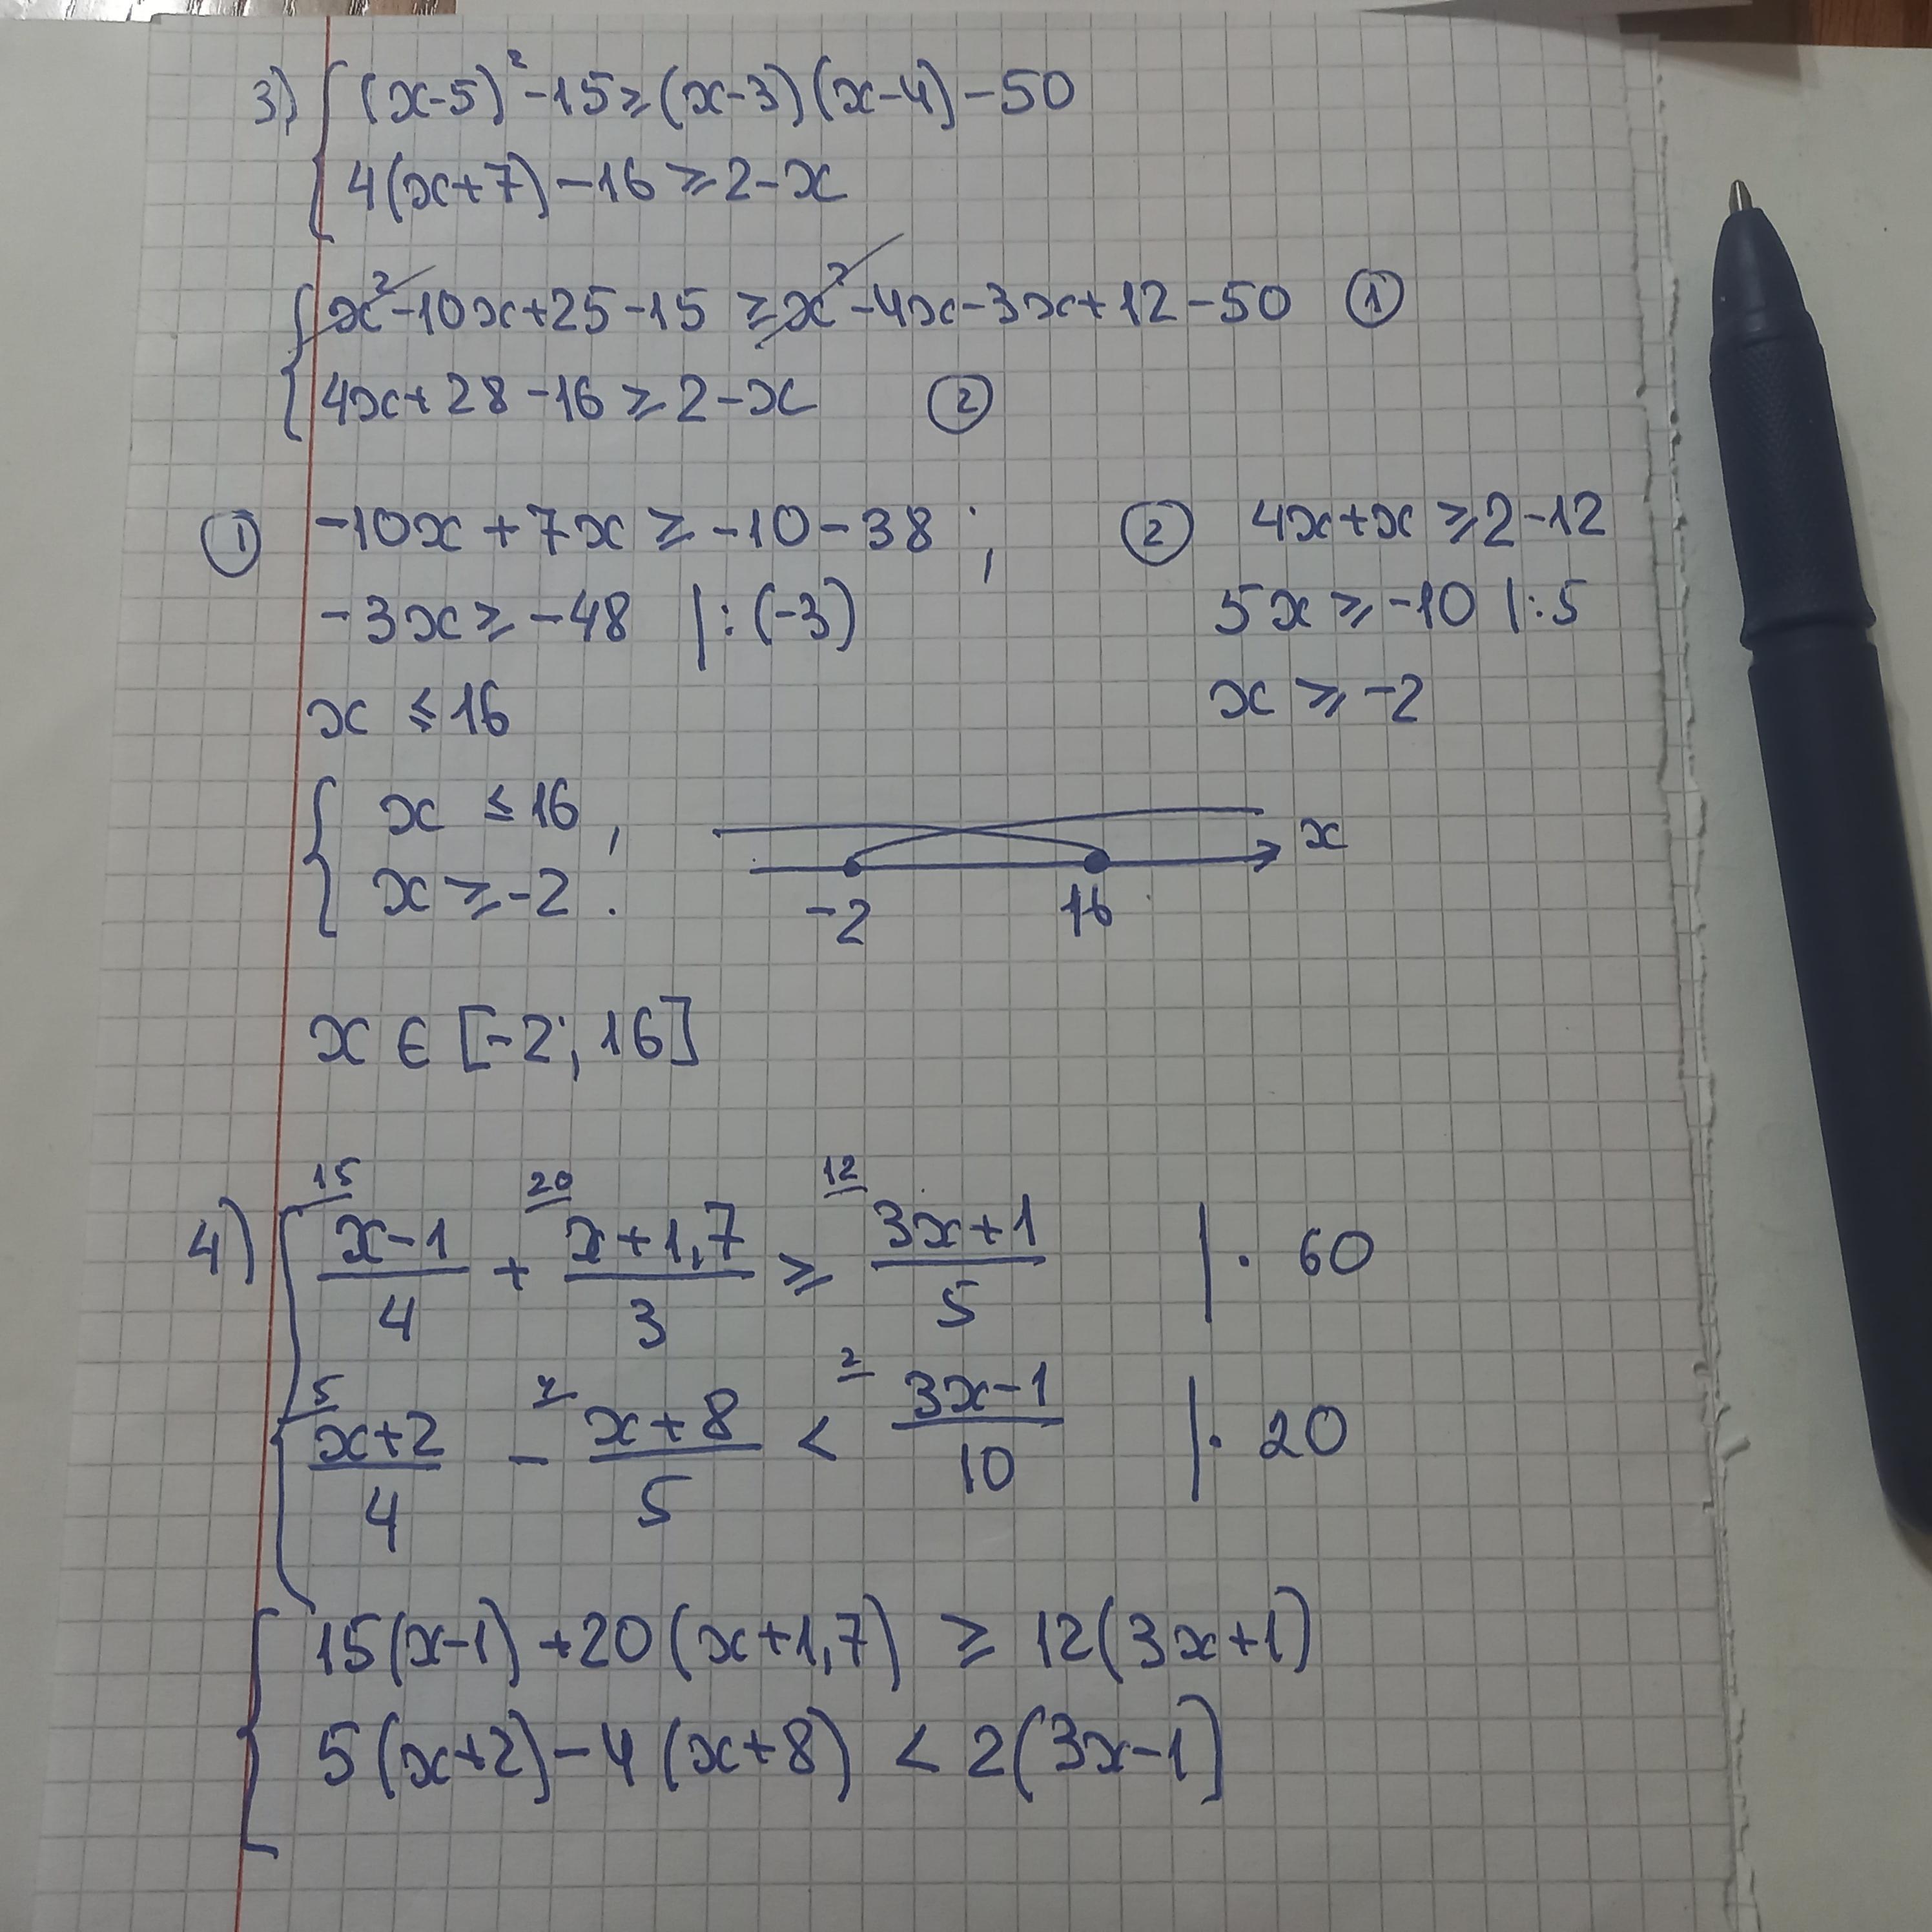 3) { (x-5)² -15 ≥ (x-3)(x-4) -50
4(x+7) -16 ≥ 2-x
{ x² -10x+25-15 ≥ x² -4x-3x+12-50 ①
4x+28-16 ≥ 2-x ②
① -10x + 7x ≥ -10-38 ; ② 4x+x ≥ 2-12
-3x ≥ -48 |:(-3) 5x ≥ -10 |:5
x ≤ 16 x ≥ -2
{ x ≤ 16 , x
x ≥ -2 . -2 16
x ∈ [-2; 16]
15 20 12
4) { (x-1)/4 + (x+1,7)/3 ≥ (3x+1)/5 | · 60
5 4 2
(x+2)/4 - (x+8)/5 < (3x-1)/10 | · 20
{ 15(x-1) +20(x+1,7) ≥ 12(3x+1)
5(x+2) -4(x+8) < 2(3x-1)